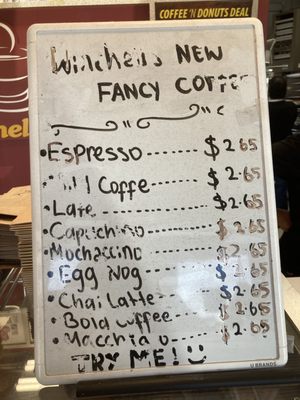 COFFEE 'N DONUTS DEAL
Winchell's NEW
FANCY COFFEE
Espresso ...... $2.65
Coffe ...... $2.65
Late ...... $2.65
Capuchino ...... $2.65
Mochaccino ...... $2.65
Egg Nog ...... $2.65
Chai Latte ...... $2.65
Bold coffee ...... $2.65
Macchiao ...... $2.65
TRY ME!
U BRANDS